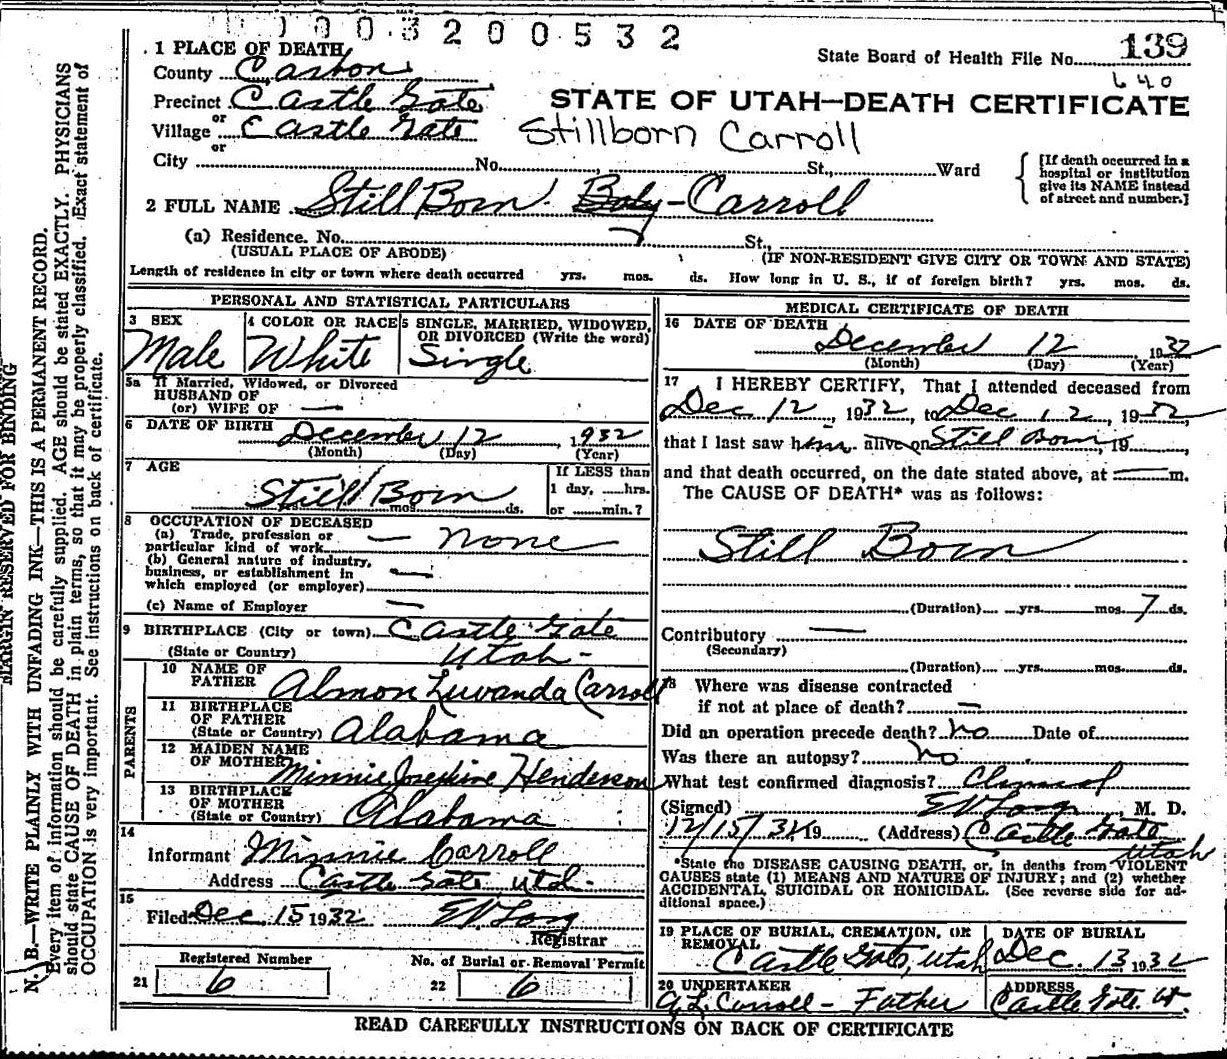 1003200532
139
State Board of Health File No.
640
1 PLACE OF DEATH
County Carbon
Precinct Castle Gate
or
Village Castle Gate
or
STATE OF UTAH—DEATH CERTIFICATE
Stillborn Carroll
City No. St., Ward
[If death occurred in a
hospital or institution
give its NAME instead
of street and number.]
2 FULL NAME Still Born Baby - Carroll
(a) Residence. No. St.,
(USUAL PLACE OF ABODE) (IF NON-RESIDENT GIVE CITY OR TOWN AND STATE)
Length of residence in city or town where death occurred yrs. mos. ds. How long in U. S., if of foreign birth? yrs. mos. ds.
PERSONAL AND STATISTICAL PARTICULARS
3 SEX
Male
4 COLOR OR RACE
White
5 SINGLE, MARRIED, WIDOWED,
OR DIVORCED (Write the word)
Single
5a If Married, Widowed, or Divorced
HUSBAND OF
(or) WIFE OF —
6 DATE OF BIRTH
December 12, 1932
(Month) (Day) (Year)
7 AGE
Still Born
yrs. mos. ds.
If LESS than
1 day, hrs.
or min.?
8 OCCUPATION OF DECEASED
(a) Trade, profession or
particular kind of work — none
(b) General nature of industry,
business, or establishment in
which employed (or employer) —
(c) Name of Employer —
9 BIRTHPLACE (City or town) Castle Gate
(State or Country) Utah -
PARENTS
10 NAME OF
FATHER Almon Luvanda Carroll
11 BIRTHPLACE
OF FATHER
(State or Country) Alabama
12 MAIDEN NAME
OF MOTHER Minnie Josephine Henderson
13 BIRTHPLACE
OF MOTHER
(State or Country) Alabama
14
Informant Minnie Carroll
Address Castle Gate, Utah -
15
Filed Dec 15 1932 EV Long
Registrar
Registered Number
21 6
No. of Burial or Removal Permit
22 6
MEDICAL CERTIFICATE OF DEATH
16 DATE OF DEATH
December 12 1932
(Month) (Day) (Year)
17 I HEREBY CERTIFY, That I attended deceased from
Dec 12, 1932, to Dec 12, 1932,
that I last saw him alive on Still Born, 19
and that death occurred, on the date stated above, at — m.
The CAUSE OF DEATH* was as follows:
Still Born
(Duration) yrs. mos. 7 ds.
Contributory —
(Secondary)
(Duration) yrs. mos. ds.
18 Where was disease contracted
if not at place of death? —
Did an operation precede death? no Date of
Was there an autopsy? no
What test confirmed diagnosis? Clinical
(Signed) EV Long M. D.
12/15/32 19 (Address) Castle Gate
Utah
*State the DISEASE CAUSING DEATH, or, in deaths from VIOLENT
CAUSES state (1) MEANS AND NATURE OF INJURY; and (2) whether
ACCIDENTAL, SUICIDAL OR HOMICIDAL. (See reverse side for ad-
ditional space.)
19 PLACE OF BURIAL, CREMATION, OR
REMOVAL
Castle Gate, Utah
DATE OF BURIAL
Dec. 13 1932
20 UNDERTAKER
A L Carroll - Father
ADDRESS
Castle Gate. Ut.
READ CAREFULLY INSTRUCTIONS ON BACK OF CERTIFICATE
MARGIN RESERVED FOR BINDING
N. B.—WRITE PLAINLY WITH UNFADING INK—THIS IS A PERMANENT RECORD.
Every item of information should be carefully supplied. AGE should be stated EXACTLY. PHYSICIANS
should state CAUSE OF DEATH in plain terms, so that it may be properly classified. Exact statement of
OCCUPATION is very important. See instructions on back of certificate.